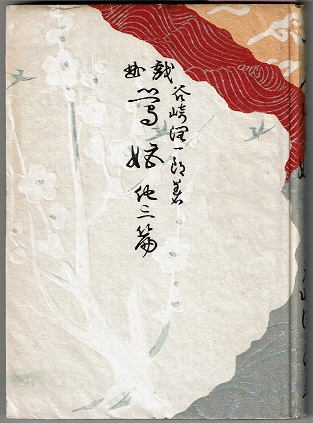 谷崎潤一郎著
戯曲
鶯姫 他三篇